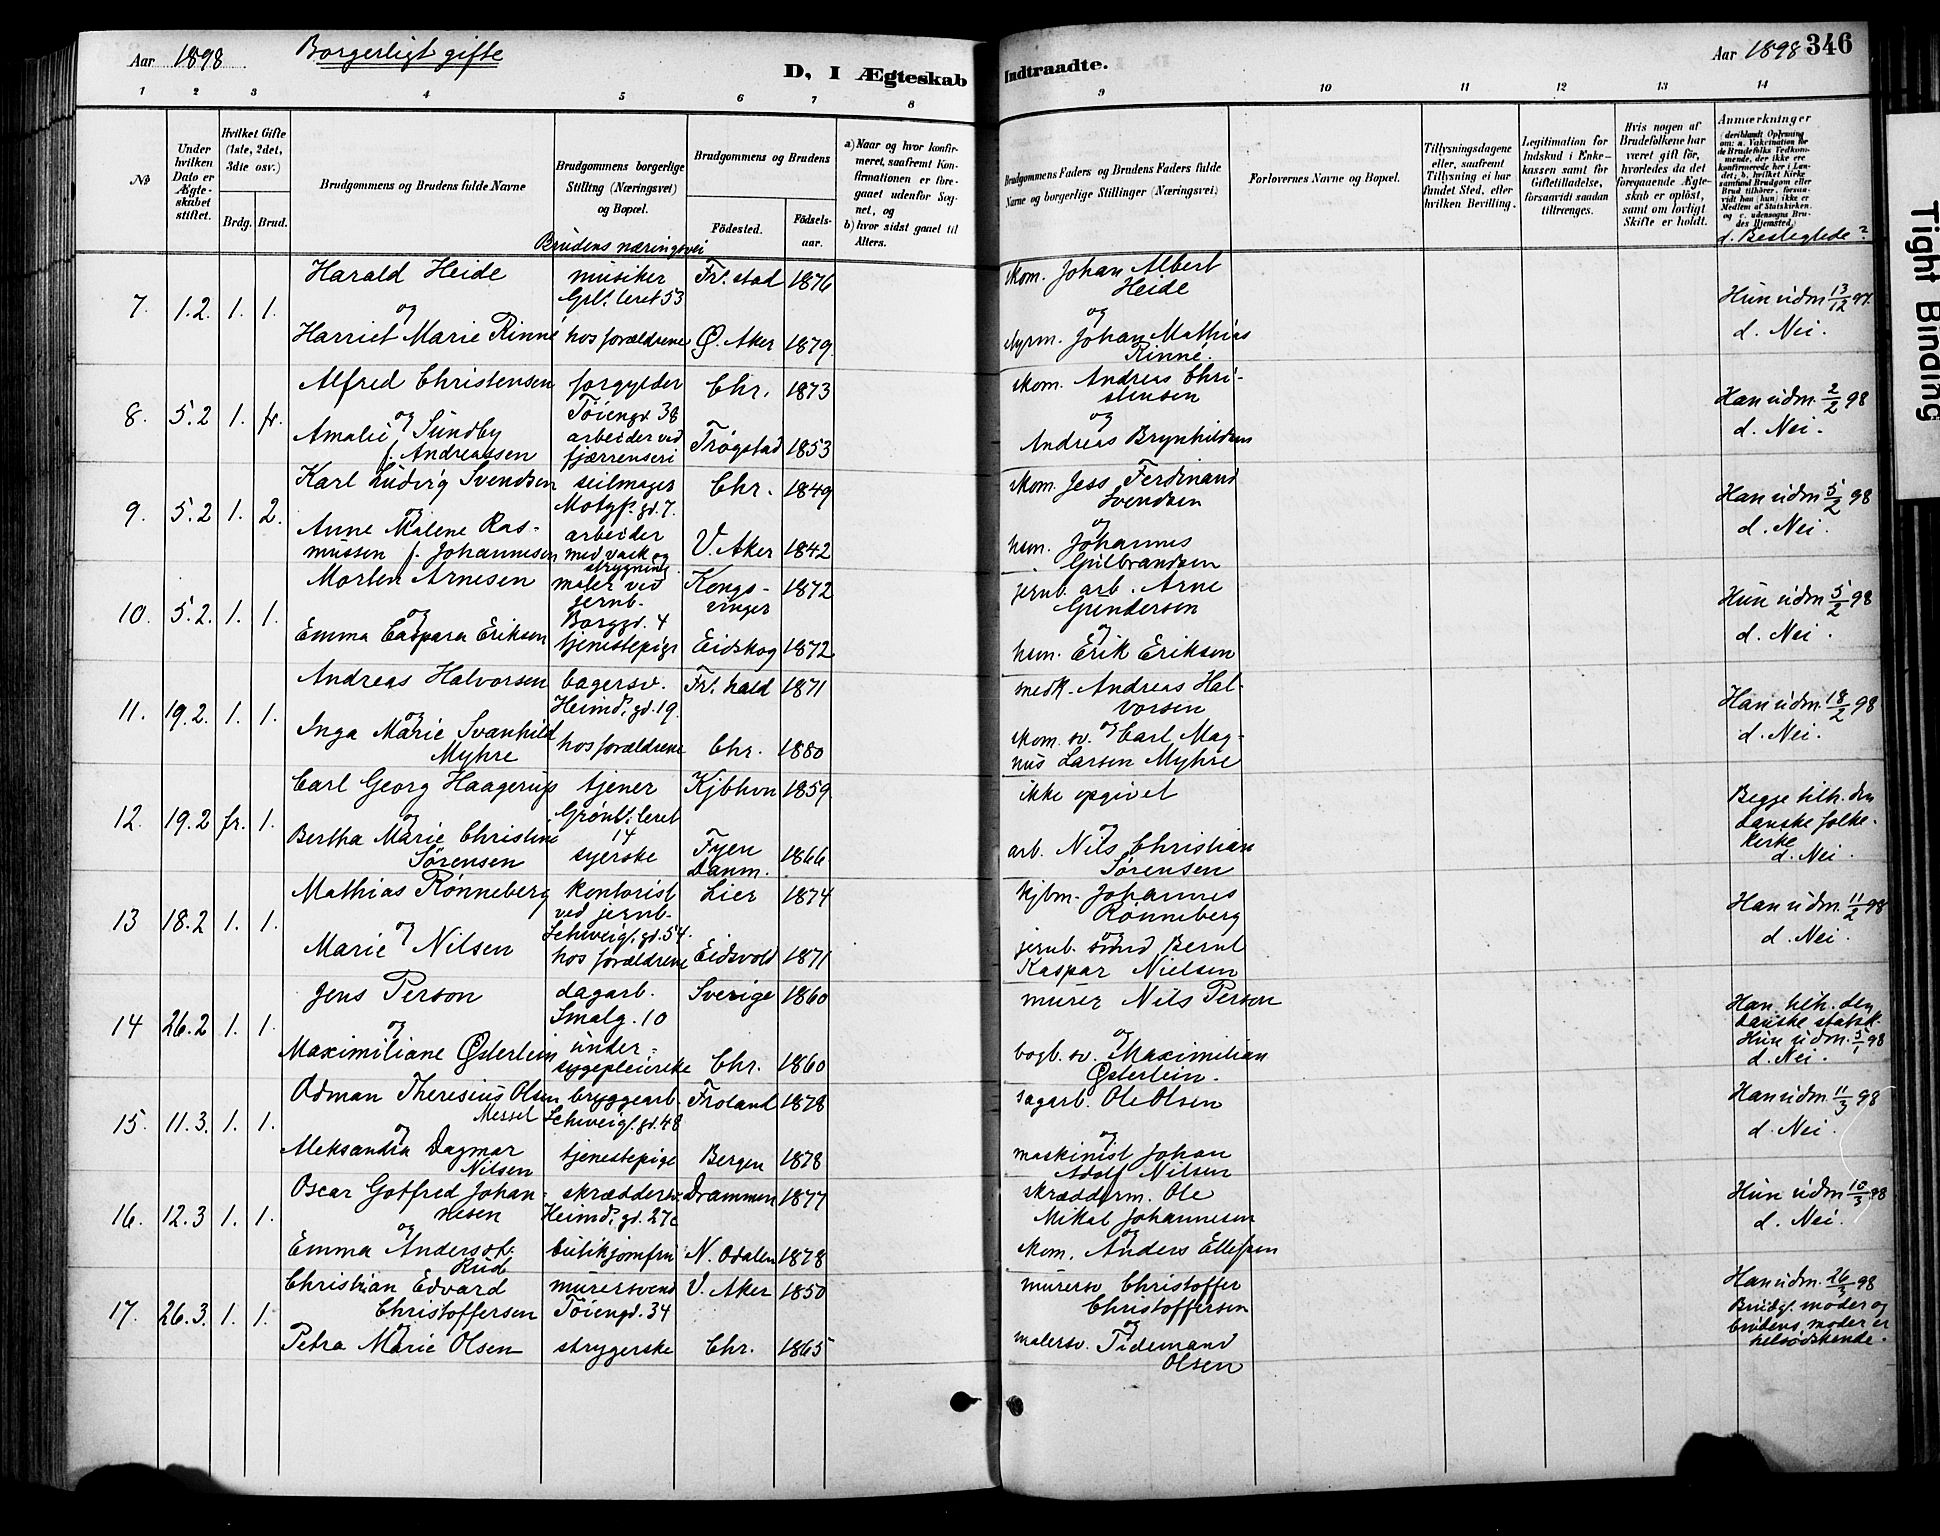 Aar 1898 Borgerligt gifte
D, I Ægteskab Indtraadte.
Aar 1898 346
1 2 3 4 5 6 7 8 9 10 11 12 13 14
No
Under hvilken Dato er Ægteskabet stiftet.
Hvilket Gifte (1ste, 2det, 3dte osv.)
Brdg. Brud.
Brudgommens og Brudens fulde Navne
Brudgommens borgerlige Stilling (Næringsvei) og Bopæl.
Brudens næringsvei
Brudgommens og Brudens
Födested. Födselsaar.
a) Naar og hvor konfirmeret, saafremt Konfirmationen er foregaaet udenfor Sognet, og
b) hvor sidst gaaet til Alters.
Brudgommens Faders og Brudens Faders fulde Navne og borgerlige Stillinger (Næringsvei)
Forlovernes Navne og Bopæl.
Tillysningsdagene eller, saafremt Tillysning ei har fundet Sted, efter hvilken Bevilling.
Legitimation for Indskud i Enkekassen samt for Giftetilladelse, forsaavidt saadan tiltrænges.
Hvis nogen af Brudefolkene har været gift för, hvorledes da det foregaaende Ægteskab er oplöst, samt om lovligt Skifte er holdt.
Anmærkninger (deriblandt Oplysning om: a. Vakcination for de Brudefolks Vedkommende, der ikke ere konfirmerede her i Landet; b. hvilket Kirkesamfund Brudgom eller Brud tilhörer, forsaavidt han (hun) ikke er Medlem af Statskirken, og c. udensogns Brudes Hjemsted.)
d. Beslegtede?
7. 1.2. 1. 1. Harald Heide musiker Fr.stad 1876 skom. Johan Albert
Grl. leret 53 Heide Hun udm. 13/12 97.
og og d. Nei.
Harriet Marie Rinné hos forældrene Ø. Aker 1879 styrm. Johan Mathias
Rinné.
8. 5.2 1. fr. Alfred Christensen forgylder Chr. 1873 skom. Andreas Chri-
Töiengd. 38 stensen Han udm. 2/2 98
og og d. Nei.
Amalie Sundby arbeider ved Trögstad 1853 Andreas Brynhildsen
f. Andreassen fjærrenseri
9. 5.2 1. 2. Karl Ludvig Svendsen seilmager Chr. 1849 skom. Jess Ferdinand
Motzf. gd. 7. Svendsen Han udm 5/2 98
og og d. Nei.
Anne Malene Ras- arbeider V. Aker 1842 hsm. Johannes
mussen f. Johannesen med vask og strygning Gulbrandsen
10. 5.2. 1. 1. Morten Arnesen maler ved Kongs- 1872 jernb. arb. Arne
jernb. vinger Gundersen Hun udm 5/2 98
og Borggd. 4 og d. Nei.
Emma Caspara Eriksen tjenestepige Eidskog 1872 hsm. Erik Eriksen
11. 19.2. 1. 1. Andreas Halvorsen bagersv. Fr. hald 1871 snedk. Andreas Hal-
Heimd. gd. 19. vorsen Han udm. 18/2 98
og og d. Nei.
Inga Marie Svanhild hos forældrene Chr. 1880 skom. sv. Carl Mag-
Myhre nus Larsen Myhre
12. 19.2 fr. 1. Carl Georg Haagerup tjener Kjbhvn 1859 ikke opgivet
Grønl. leret Begge tilh. den
og 14 og danske folke-
Bertha Marie Christine syerske Fyen 1866 arb. Nils Christian kirke
Sörensen Danm. Sörensen d. Nei.
13 18.2 1. 1. Mathias Rönneberg kontorist Lier 1874 kjbm. Johannes
ved jernb. Rönneberg Han udm. 11/2 98
og Schweigs. gd. 54. og d. Nei.
Marie Nilsen hos forældrene Eidsvold 1871 jernb. Bernt
Kaspar Nielsen
14 26.2 1. 1. Jens Person dagarb. Sverige 1860 murer Nils Person
Smalg. 10 Han tilh. den
og og danske statsk.
Maximiliane Østerlein under- Chr. 1860 bogb. sv. Maximilian Hun udm. 5/1 98
sygepleierske Østerlein. d. Nei.
15. 11.3. 1. 1. Odman Theresius Olsen bryggearb. Froland 1878 sagarb. Ole Olsen
Messel Schweigs. gd. 48 Han udm. 11/3 98
og og d. Nei.
Aleksandra Dagmar tjenestepige Bergen 1878 maskinist Johan
Nilsen Adolf Nilsen
16. 12.3 1. 1. Oscar Gotfred Johan- skræddersv. Drammen 1877 skrædderm. Ole
nesen Heimd. gd. 27c Mikal Johannesen Hun udm 10/3 98
og og d. Nei.
Emma Andersdt. butikjomfru N. Odalen 1878 skom. Anders Ellefsen
Rud
17. 26.3. 1. 1. Christian Edvard murersvend V. Aker 1850 murersv Christoffer
Christoffersen Töiengd. 34 Christoffersen Han udm. 26/3 98
og og Brudg. moder og
Petra Marie Olsen strygerske Chr. 1865 malersv. Tidemand brudens moder er
Olsen helsödskende.
Tight Binding